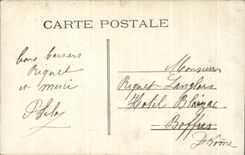 CARTE POSTALE
Bons baisers
Riquet
et mimi
Monsieur
Riquet Langlois
Hôtel Blaizac
Boffres
Drôme